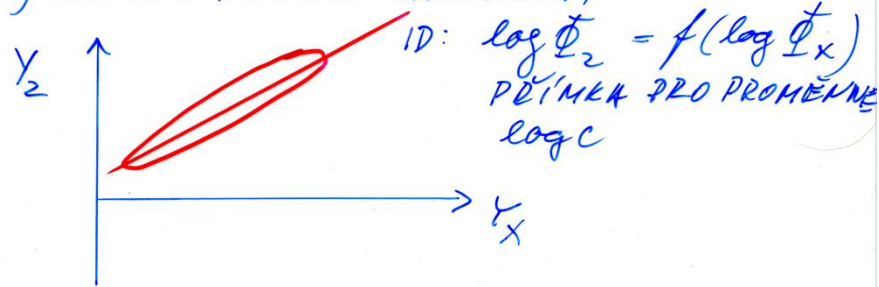 1D: log Φ₂ = f(log Φₓ)
PŘÍMKA PRO PROMĚNNÉ
log c
Y₂
Yₓ